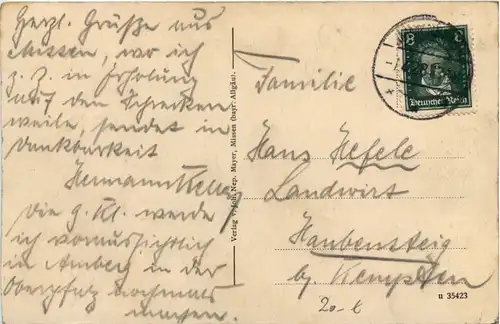 Herzl. Grüße aus
Missen, wo ich
z. Z. in Erholung
auf den Schrecken
weile, sendet in
Dankbarkeit
Hermann
Die g. Kl. werde
ich voraussichtlich
in Amberg in der
Oberpfalz nochmals
machen.
Verlag v. Joh. Nep. Mayer, Missen (bayr. Allgäu).
8 8
Deutsches Reich
Familie
Hans Hefele
Landwirt
Haubensteig
by Kempten
u 35423